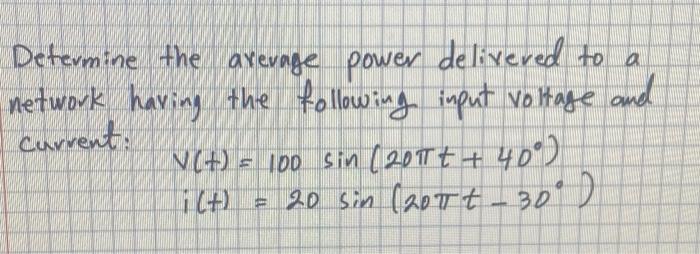 Determine the average power delivered to a
network having the following input voltage and
current:
v(t) = 100 sin (20πt + 40°)
i(t) = 20 sin (20πt - 30°)